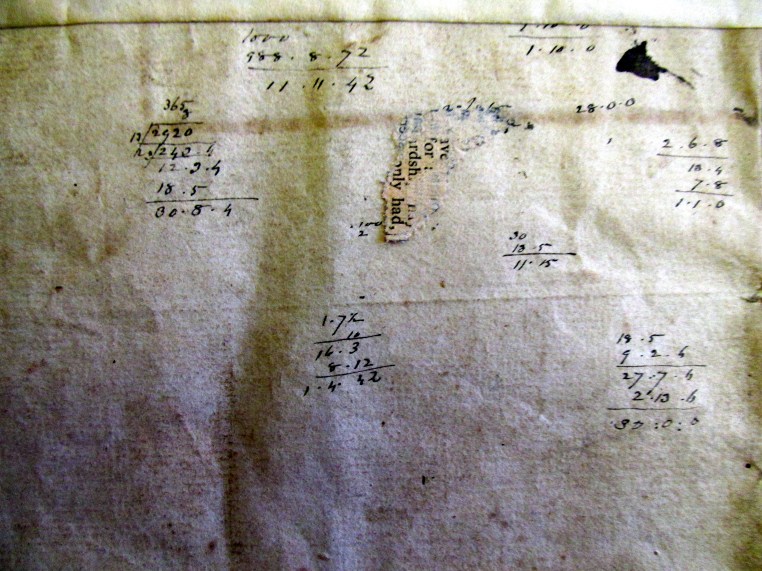 1000
988 . 8 . 7½
11 . 11 . 4½
1 . 10 . 0
1 . 10 . 0
365
8
12/2920
2,0/242 . 4
12 . 3 . 4
18 . 5
30 . 8 . 4
28 . 0 . 0
ave
for
rdsh
only had,
100
2
2 . 6 . 8
13 . 4
7 . 8
1 . 1 . 0
30
18 . 5
11 . 15
1 . 7½
10
16 . 3
8 . 12
1 . 4 . 4½
18 . 5
9 . 2 . 6
27 . 7 . 6
2 . 13 . 6
30 . 0 . 0